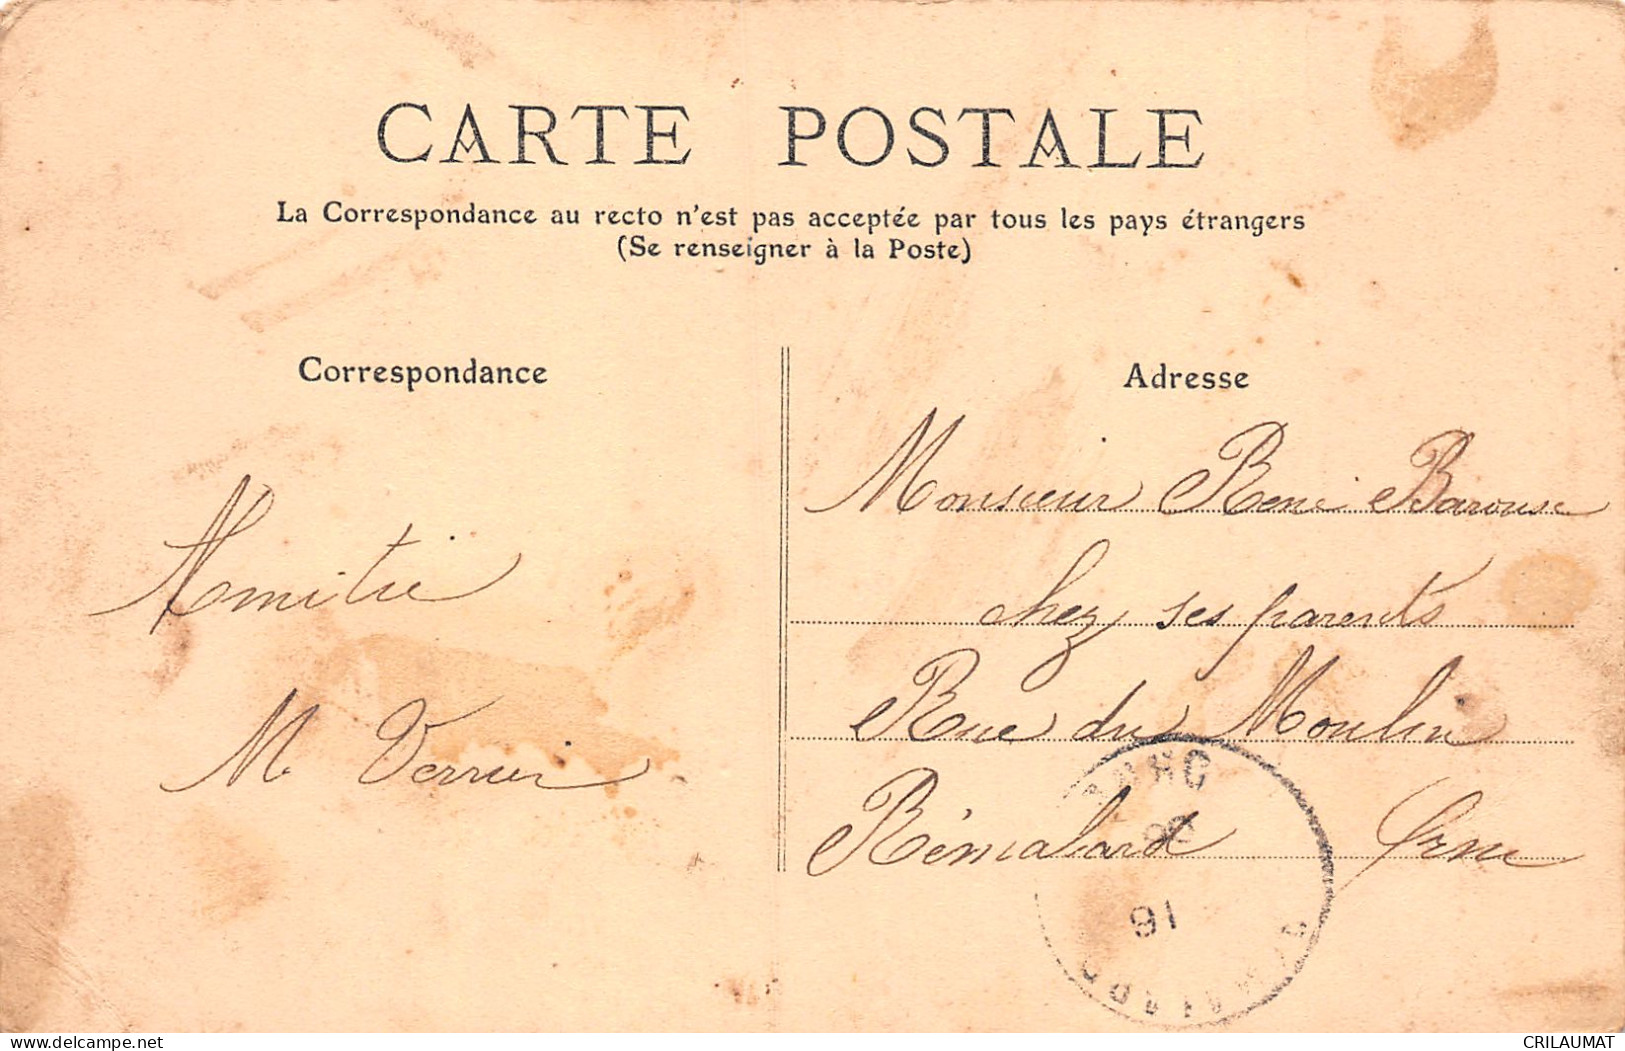 CARTE POSTALE
La Correspondance au recto n'est pas acceptée par tous les pays étrangers
(Se renseigner à la Poste)
Correspondance
Adresse
Amitié
M Verrier
Monsieur René Barouse
chez ses parents
Rue du Moulin
Rémalard Orne
CRILAUMAT